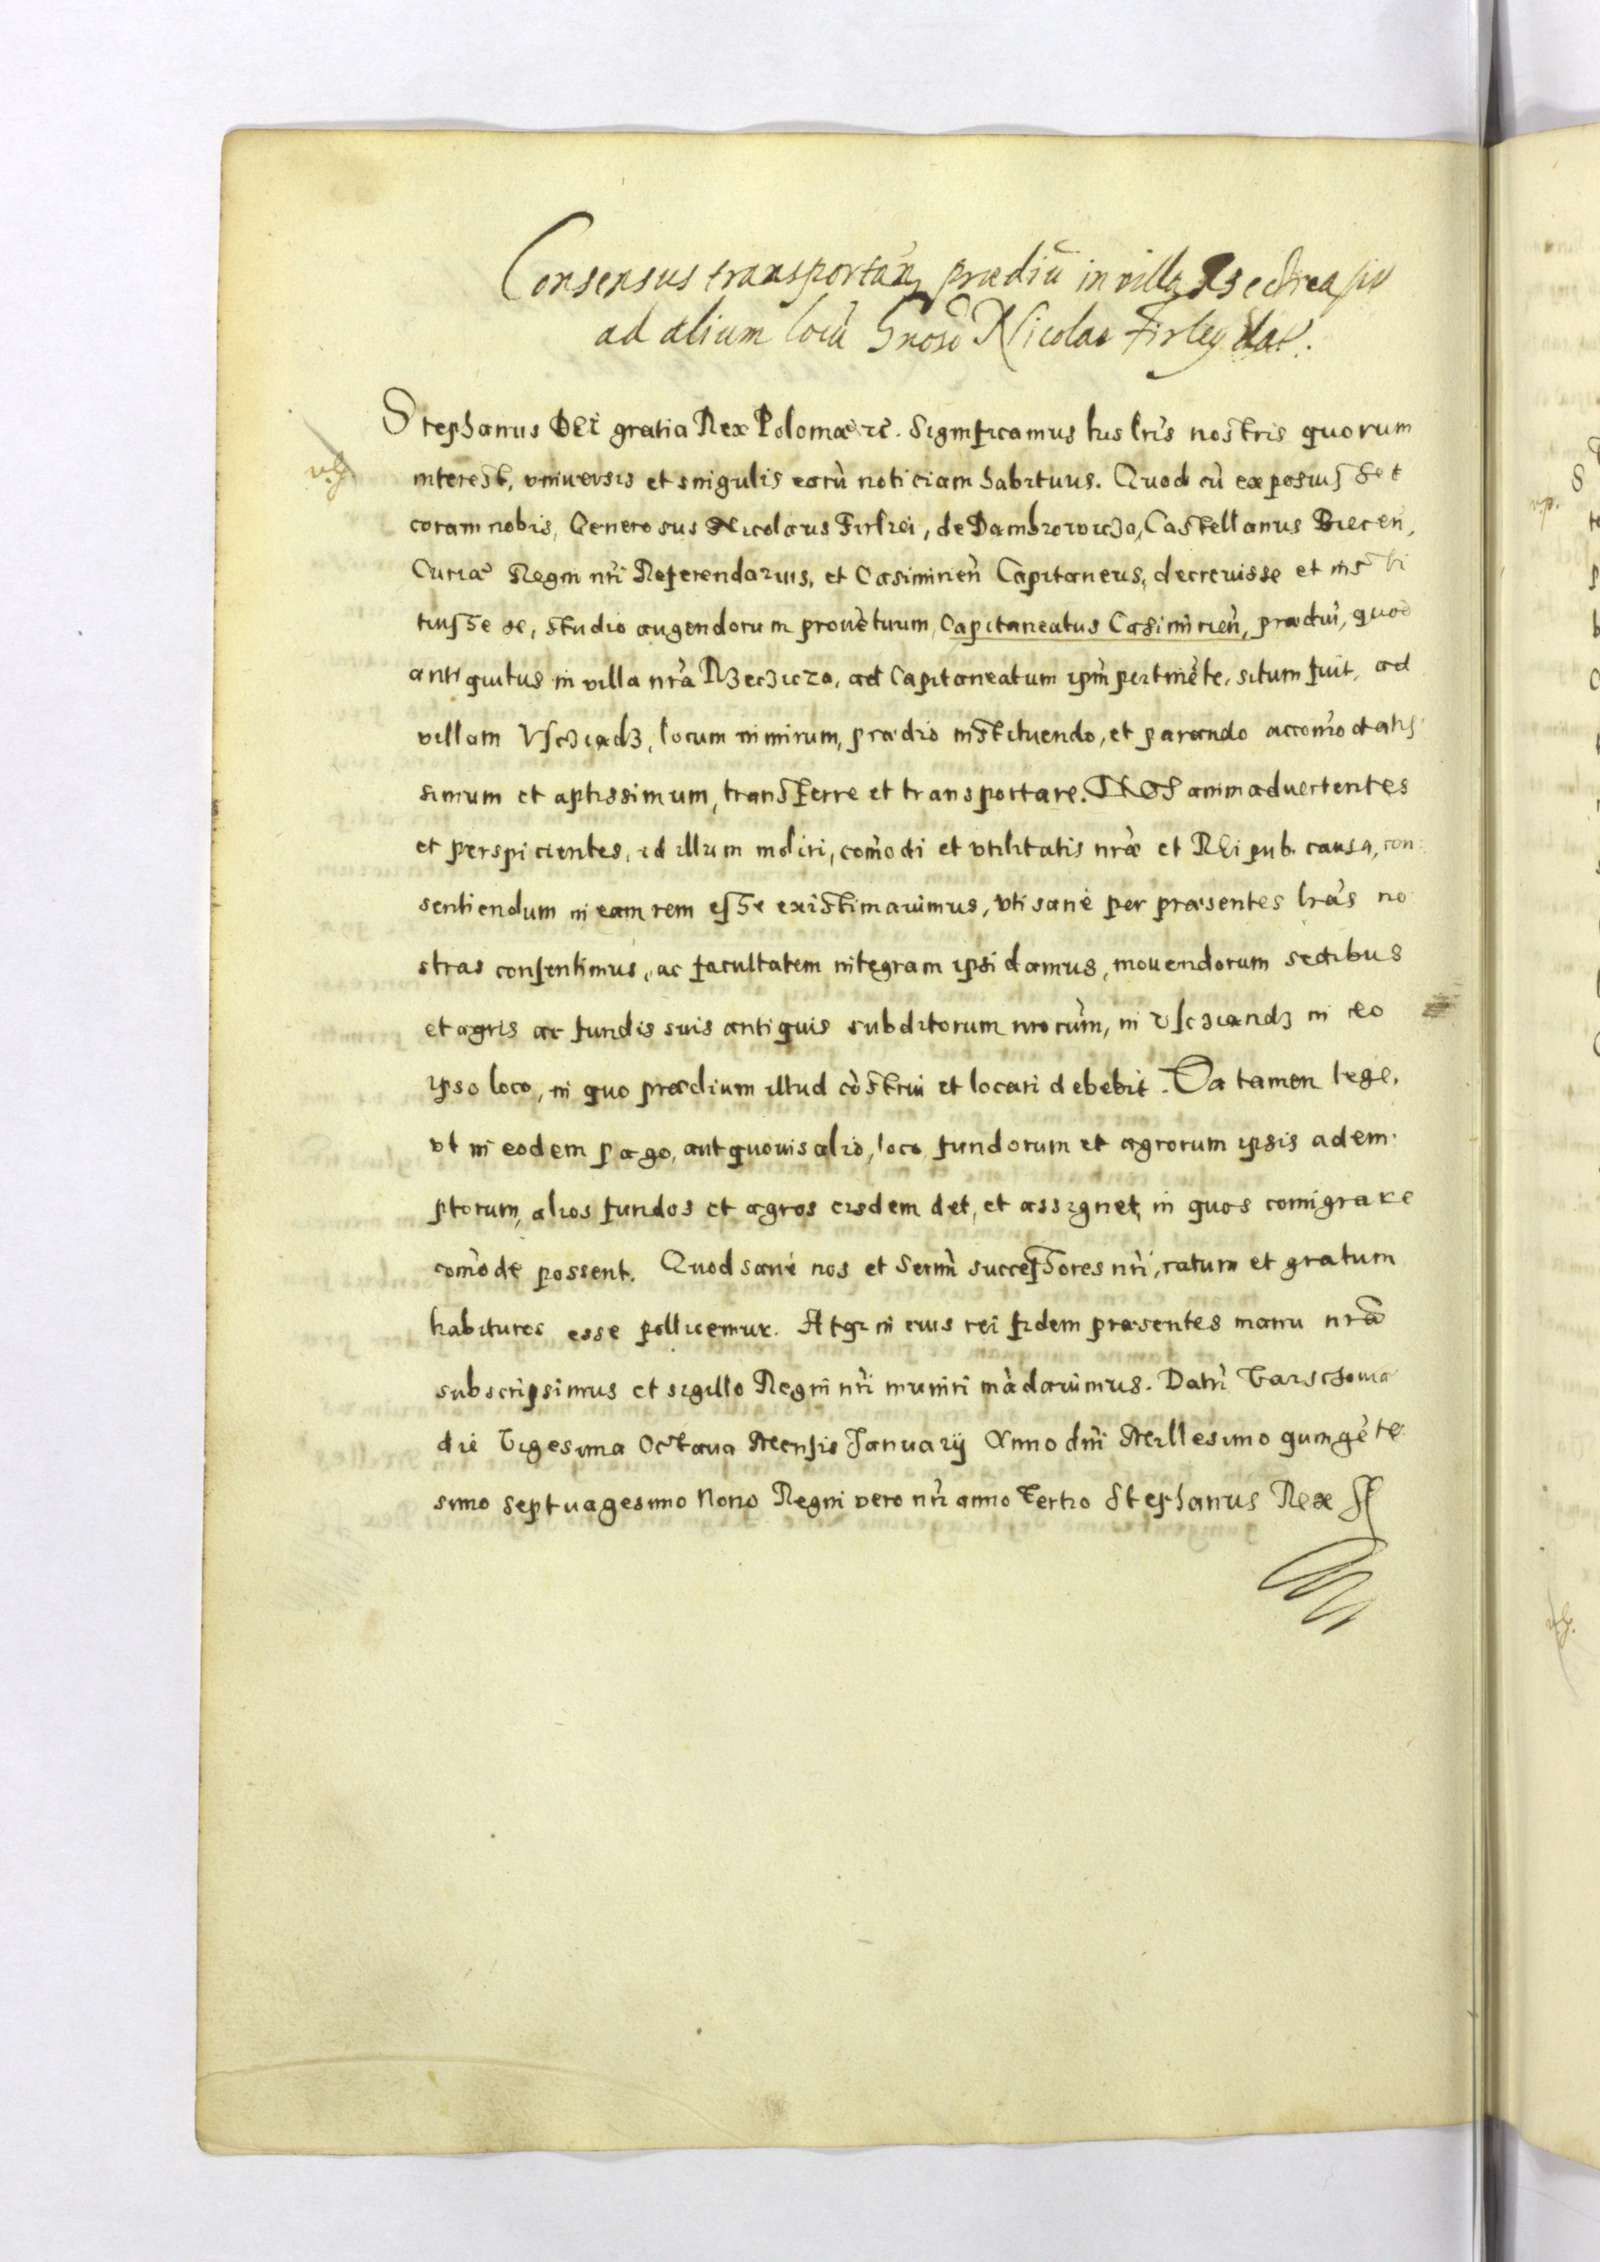 Consensus transportan prædiũ in villa
ad alium locũ Gnoso Nicolao Firley dat.
Stephanus DEI gratia Rex Poloniæ etc. Significamus hus lris nostris quorum
interest, vniuersis et singulis earũ noticiam habituris. Quod cũ exposuisset
coram nobis, Generosus Nicolaus Firlei, de Dambrowicza, Castellanus Biecen,
Curiæ Regni nri Referendarius, et Casimirien Capitaneus, decreuisse et insti
tuisse se, studio augendorum prouẽtuum, Capitaneatus Casimirien, prædiũ, quod
antiquitus in villa nra Rzeczicza, ad Capitaneatum ipm pertinẽte, situm fuit, ad
villam Vscziadz, locum nimirum, prædio instituendo, et parando accomodatis
simum et aptissimum, transferre et transportare. NOS animaduertentes
et perspicientes, id illum moliri, comodi et vtilitatis nræ et REi pub. causa, con
sentiendum in eam rem esse existimauimus, vti sane per præsentes lras no
stras consentimus, ac facultatem integram ipsi damus, mouendorum sedibus
et agris ac fundis suis antiquis subditorum nrorum, in Vscziandz in eo
ipso loco, in quo prædium illud cõstrui et locari debebit. Ea tamen lege,
vt in eodem pago, aut quouis alio, loco fundorum et agrorum ipsis adem
ptorum, alios fundos et agros eisdem det, et assignet, in quos comigrare
comode possent. Quod sane nos et Sermi successores nri, ratum et gratum
habituros esse pollicemur. Atq in euis rei fidem præsentes manu nra
subscripsimus et sigillo Regni nri muniri mãdauimus. Datũ Varschouiæ
die Vigesima Octaua Mensis Januarij Anno dni Millesimo quingẽte
simo Septuagesimo Nono Regni vero nri anno Tertio Stephanus Rex